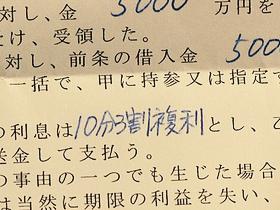 対し、金 5000 万円を
け、受領した。
対し、前条の借入金 500
一括で、甲に持参又は指定す
の利息は10分3割複利とし、
送金して支払う。
の事由の一つでも生じた場合
は当然に期限の利益を失い、